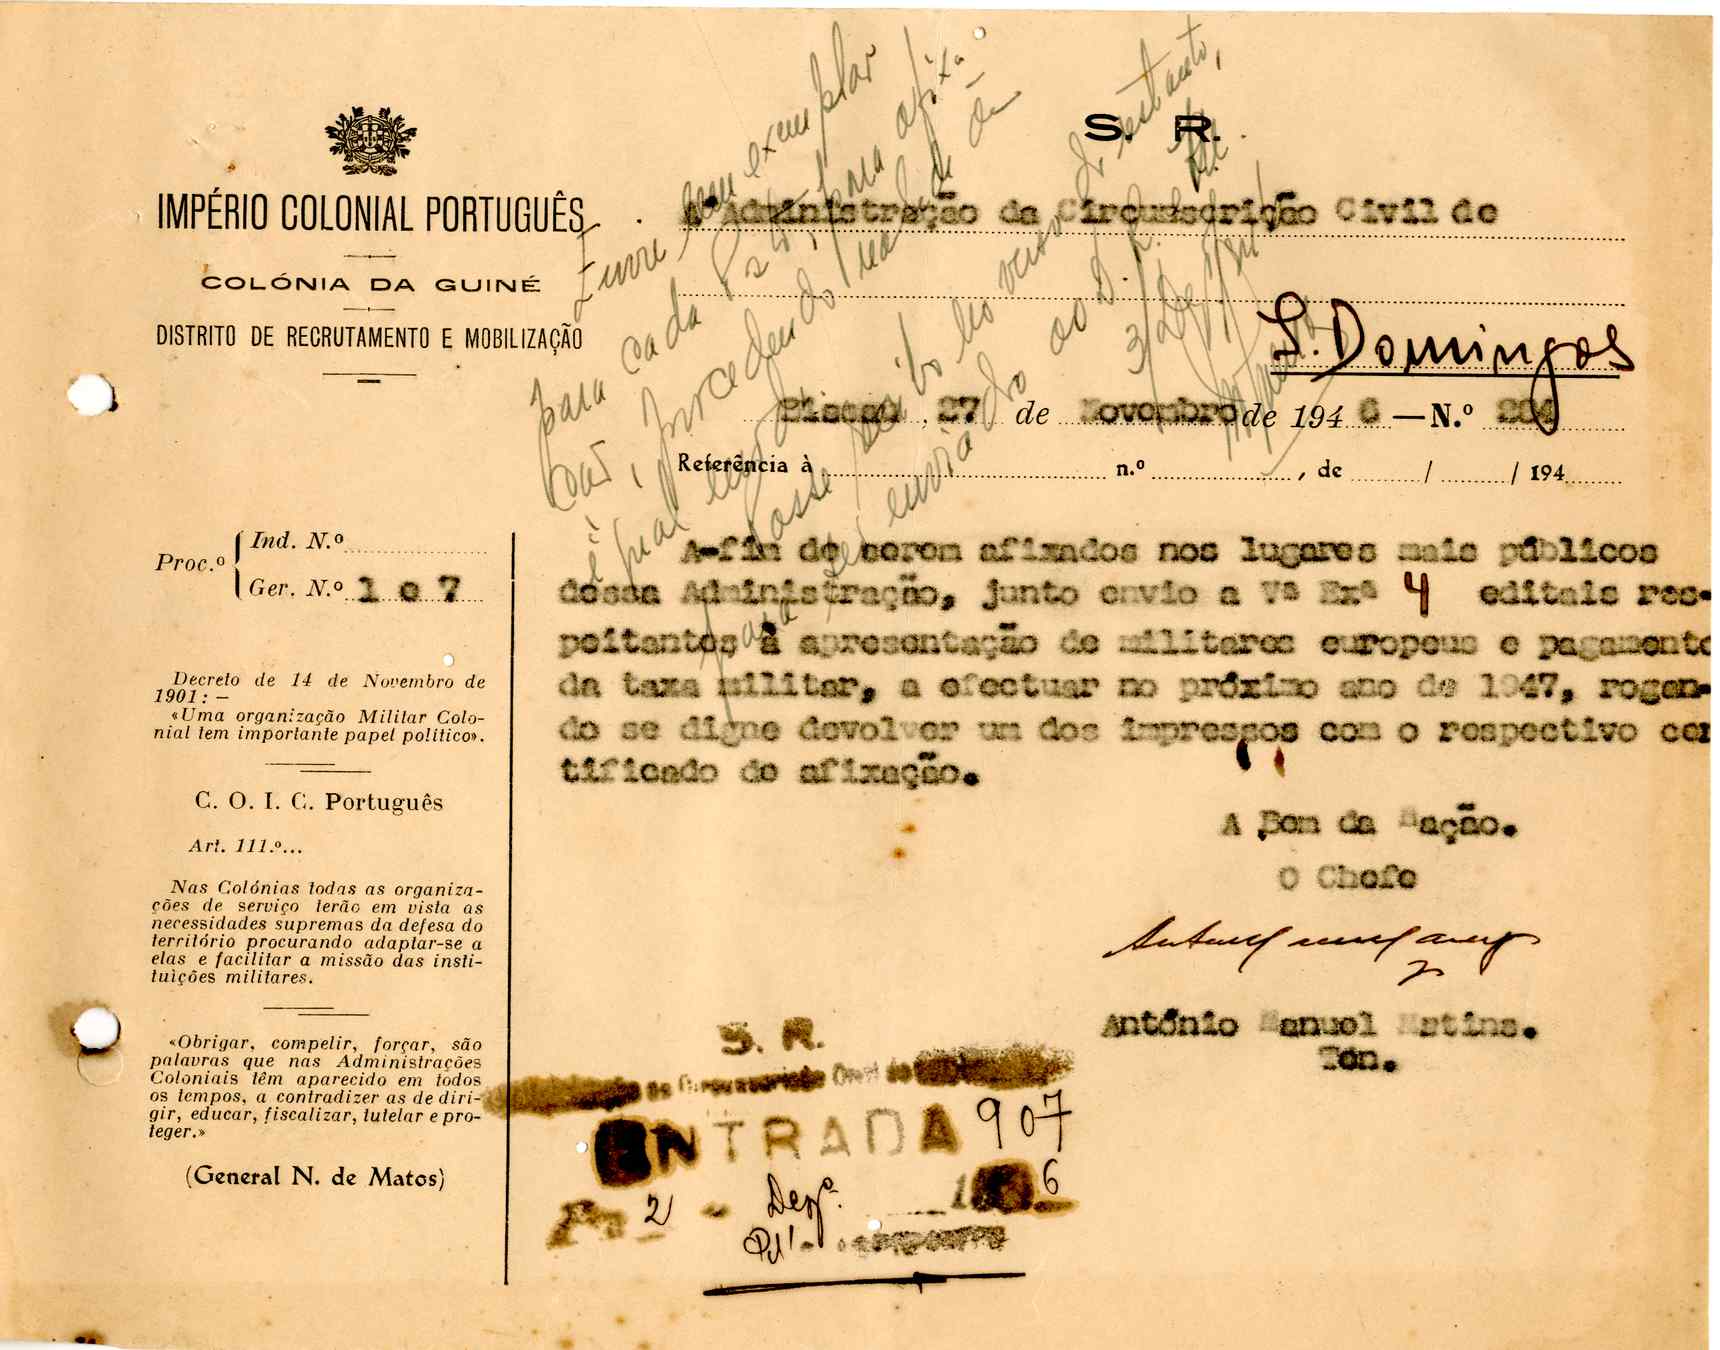 IMPÉRIO COLONIAL PORTUGUÊS
COLÓNIA DA GUINÉ
DISTRITO DE RECRUTAMENTO E MOBILIZAÇÃO
S. R.
Administração da Circunscrição Civil de
S. Domingos
Bissau, 27 de Novembro de 1946 — N.º 204
Referência à n.º , de / / 194
Envie um exemplar
para cada Posto, para afixa-
ção, procedendo
no verso do restante,
para ser enviado ao D. R. M.
3/Dez
Proc.º
Ind. N.º
Ger. N.º 1 e 7
Decreto de 14 de Novembro de
1901: —
«Uma organização Militar Colo-
nial tem importante papel político».
C. O. I. C. Português
Art. 111.º...
Nas Colónias todas as organiza-
ções de serviço terão em vista as
necessidades supremas da defesa do
território procurando adaptar-se a
elas e facilitar a missão das insti-
tuìções militares.
«Obrigar, compelir, forçar, são
palavras que nas Administrações
Coloniais têm aparecido em todos
os tempos, a contradizer as de diri-
gir, educar, fiscalizar, tutelar e pro-
teger.»
(General N. de Matos)
A-fim de serem afixados nos lugares mais públicos
dessa Administração, junto envio a Vª Exª 4 editais res-
peitantes à apresentação de militares europeus e pagamento
da taxa militar, a efectuar no próximo ano de 1947, rogan-
do se digne devolver um dos impressos com o respectivo cer
tificado de afixação.
A Bem da Nação.
O Chefe
António Manuel Matins.
Ten.
S. R.
ENTRADA 907
2 Dezº. 6